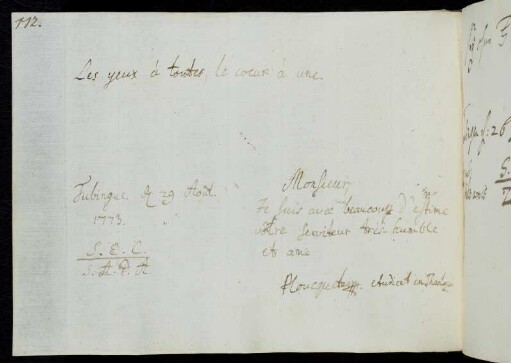 112.
Les yeux à toutes, le coeur à une.
Tubingue, 29 Août.
1773.
S. E. C.
S. A. P. A.
Monsieur,
Je suis avec beaucoup d'estime
vôtre serviteur tres-humble
et ami
Ploucquet etudiant en Theologie